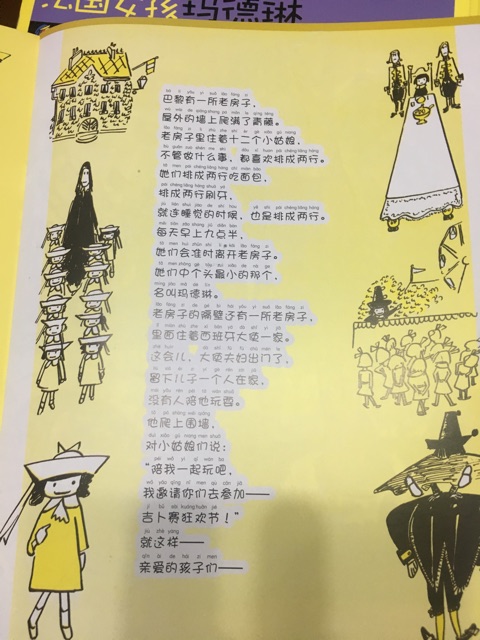 琳德玛
巴黎有一所老房子，
屋外的墙上爬满了青藤。
老房子里住着十二个小姑娘，
不管做什么事，都喜欢排成两行。
她们排成两行吃面包，
排成两行刷牙，
就连睡觉的时候，也是排成两行。
每天早上九点半，
她们会准时离开老房子。
她们中个头最小的那个，
名叫玛德琳。
老房子的隔壁还有一所老房子，
里面住着西班牙大使一家。
这会儿，大使夫妇出门了，
留下儿子一个人在家，
没有人陪他玩耍。
他爬上围墙，
对小姑娘们说：
“陪我一起玩吧，
我邀请你们去参加——
吉卜赛狂欢节！”
就这样——
亲爱的孩子们——